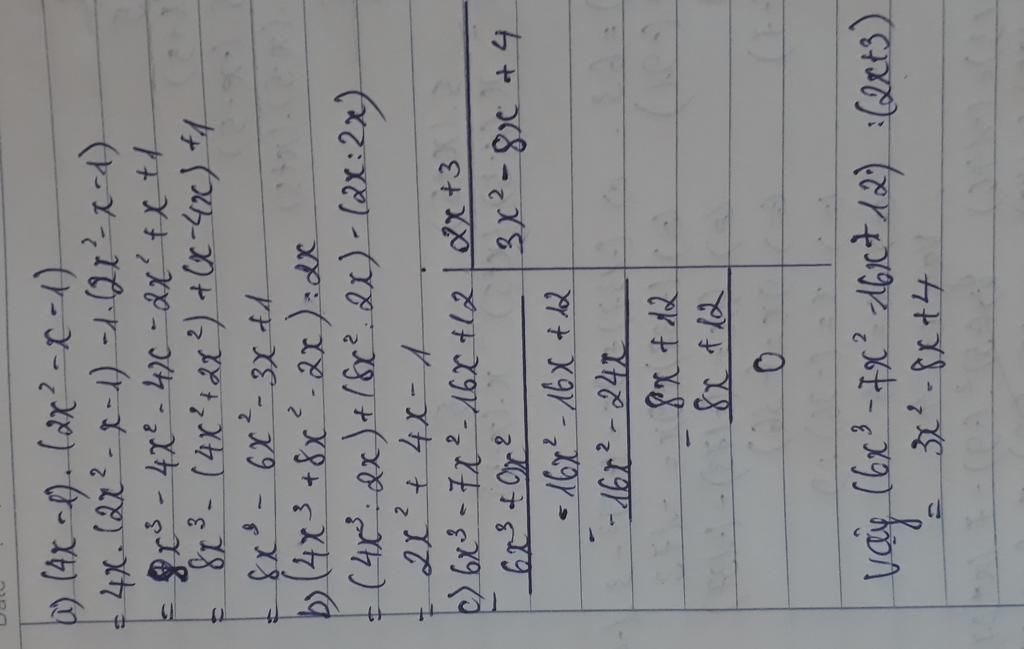 a) (4x - 1). (2x² - x - 1)
= 4x. (2x² - x - 1) - 1. (2x² - x - 1)
= 8x³ - 4x² - 4x - 2x² + x + 1
= 8x³ - (4x² + 2x²) + (x - 4x) + 1
= 8x³ - 6x² - 3x + 1
b) (4x³ + 8x² - 2x) : 2x
= (4x³ : 2x) + (8x² : 2x) - (2x : 2x)
= 2x² + 4x - 1
c) 6x³ - 7x² - 16x + 12 | 2x + 3
- 6x³ + 9x² | 3x² - 8x + 4
- 16x² - 16x + 12
- - 16x² - 24x
8x + 12
- 8x + 12
0
Vậy (6x³ - 7x² - 16x + 12) : (2x + 3)
= 3x² - 8x + 4